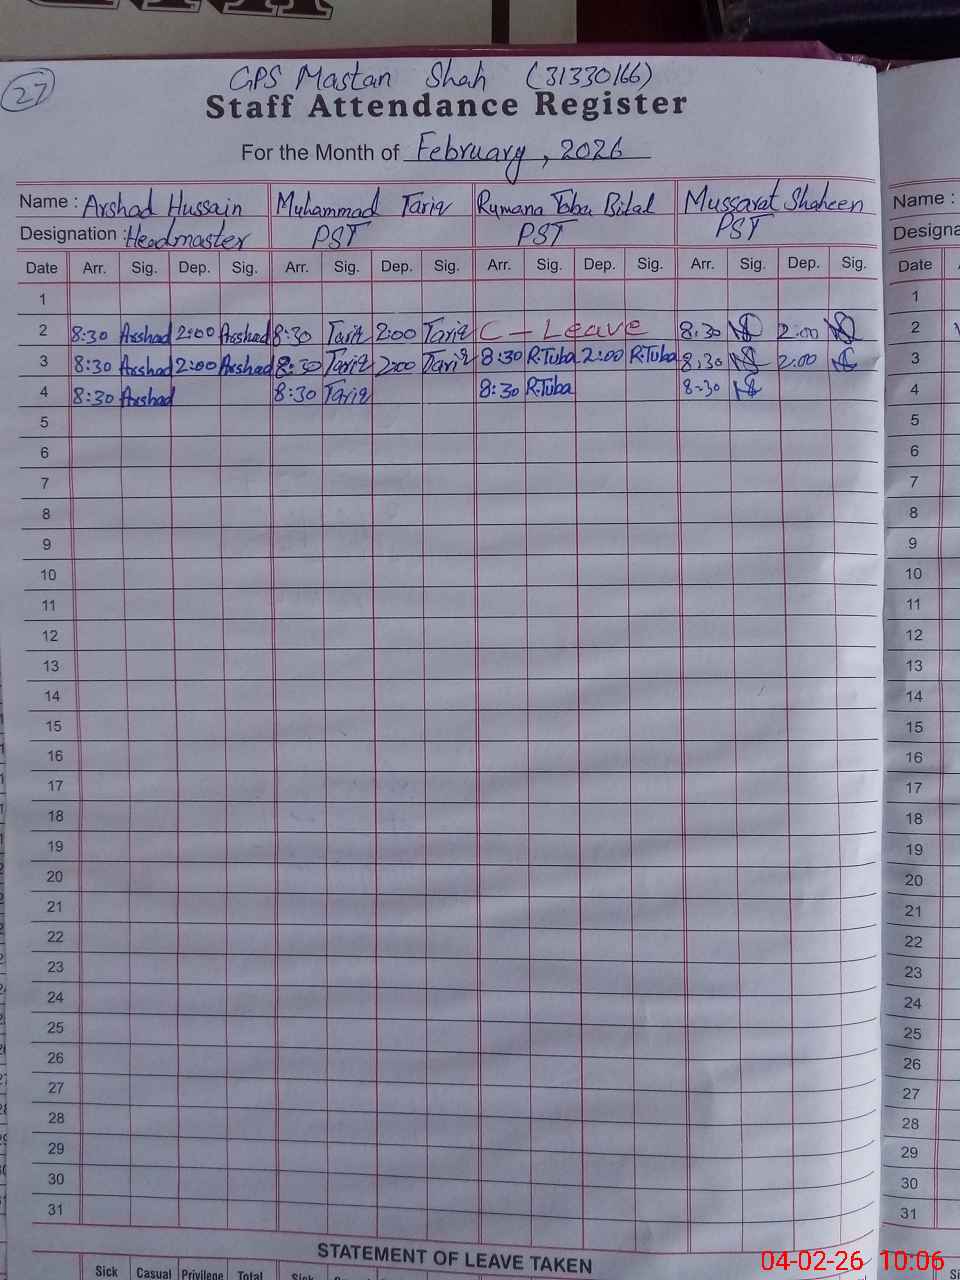 27
GPS Mastan Shah (31330166)
Staff Attendance Register
For the Month of February, 2026
Name : Arshad Hussain Muhammad Tariq Rumana Toba Bilal Mussarat Shaheen Name :
Designation : Headmaster PST PST PST Designa
Date Arr. Sig. Dep. Sig. Arr. Sig. Dep. Sig. Arr. Sig. Dep. Sig. Arr. Sig. Dep. Sig. Date
1 1
2 8:30 Arshad 2:00 Arshad 8:30 Tariq 2:00 Tariq C - Leave 8:30 2:00 2
3 8:30 Arshad 2:00 Arshad 8:30 Tariq 2:00 Tariq 8:30 R.Tuba 2:00 R.Tuba 8:30 2:00 3
4 8:30 Arshad 8:30 Tariq 8:30 R.Tuba 8:30 4
5 5
6 6
7 7
8 8
9 9
10 10
11 11
12 12
13 13
14 14
15 15
16 16
17 17
18 18
19 19
20 20
21 21
22 22
23 23
24 24
25 25
26 26
27 27
28 28
29 29
30 30
31 31
STATEMENT OF LEAVE TAKEN
Sick Casual Privilege Total Sick
04-02-26 10:06